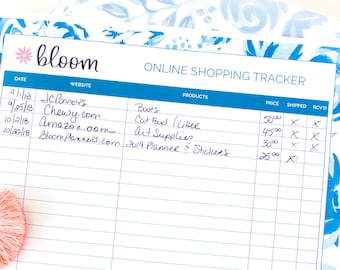 bloom
ONLINE SHOPPING TRACKER
DATE WEBSITE PRODUCTS PRICE SHIPPED RCV'D
9/1/18 JCPenney's Boots 50.00 X X
9/25/18 Chewy.com Cat Food / Litter 45.00 X X
10/2/18 Amazon.com Art Supplies 30.00 X X
10/22/18 BloomPlanners.com 2019 Planner & Stickers 25.00 X